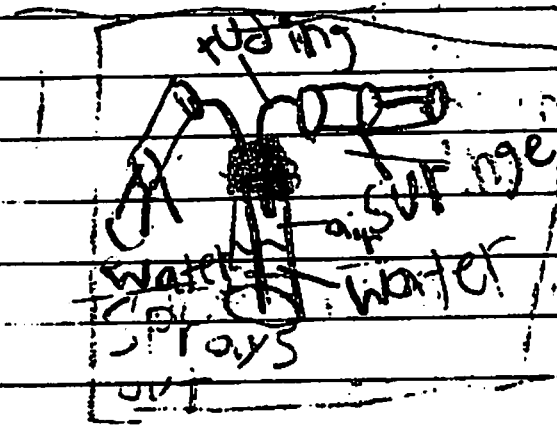 tubing
surınge
air
water
water
sprays
out